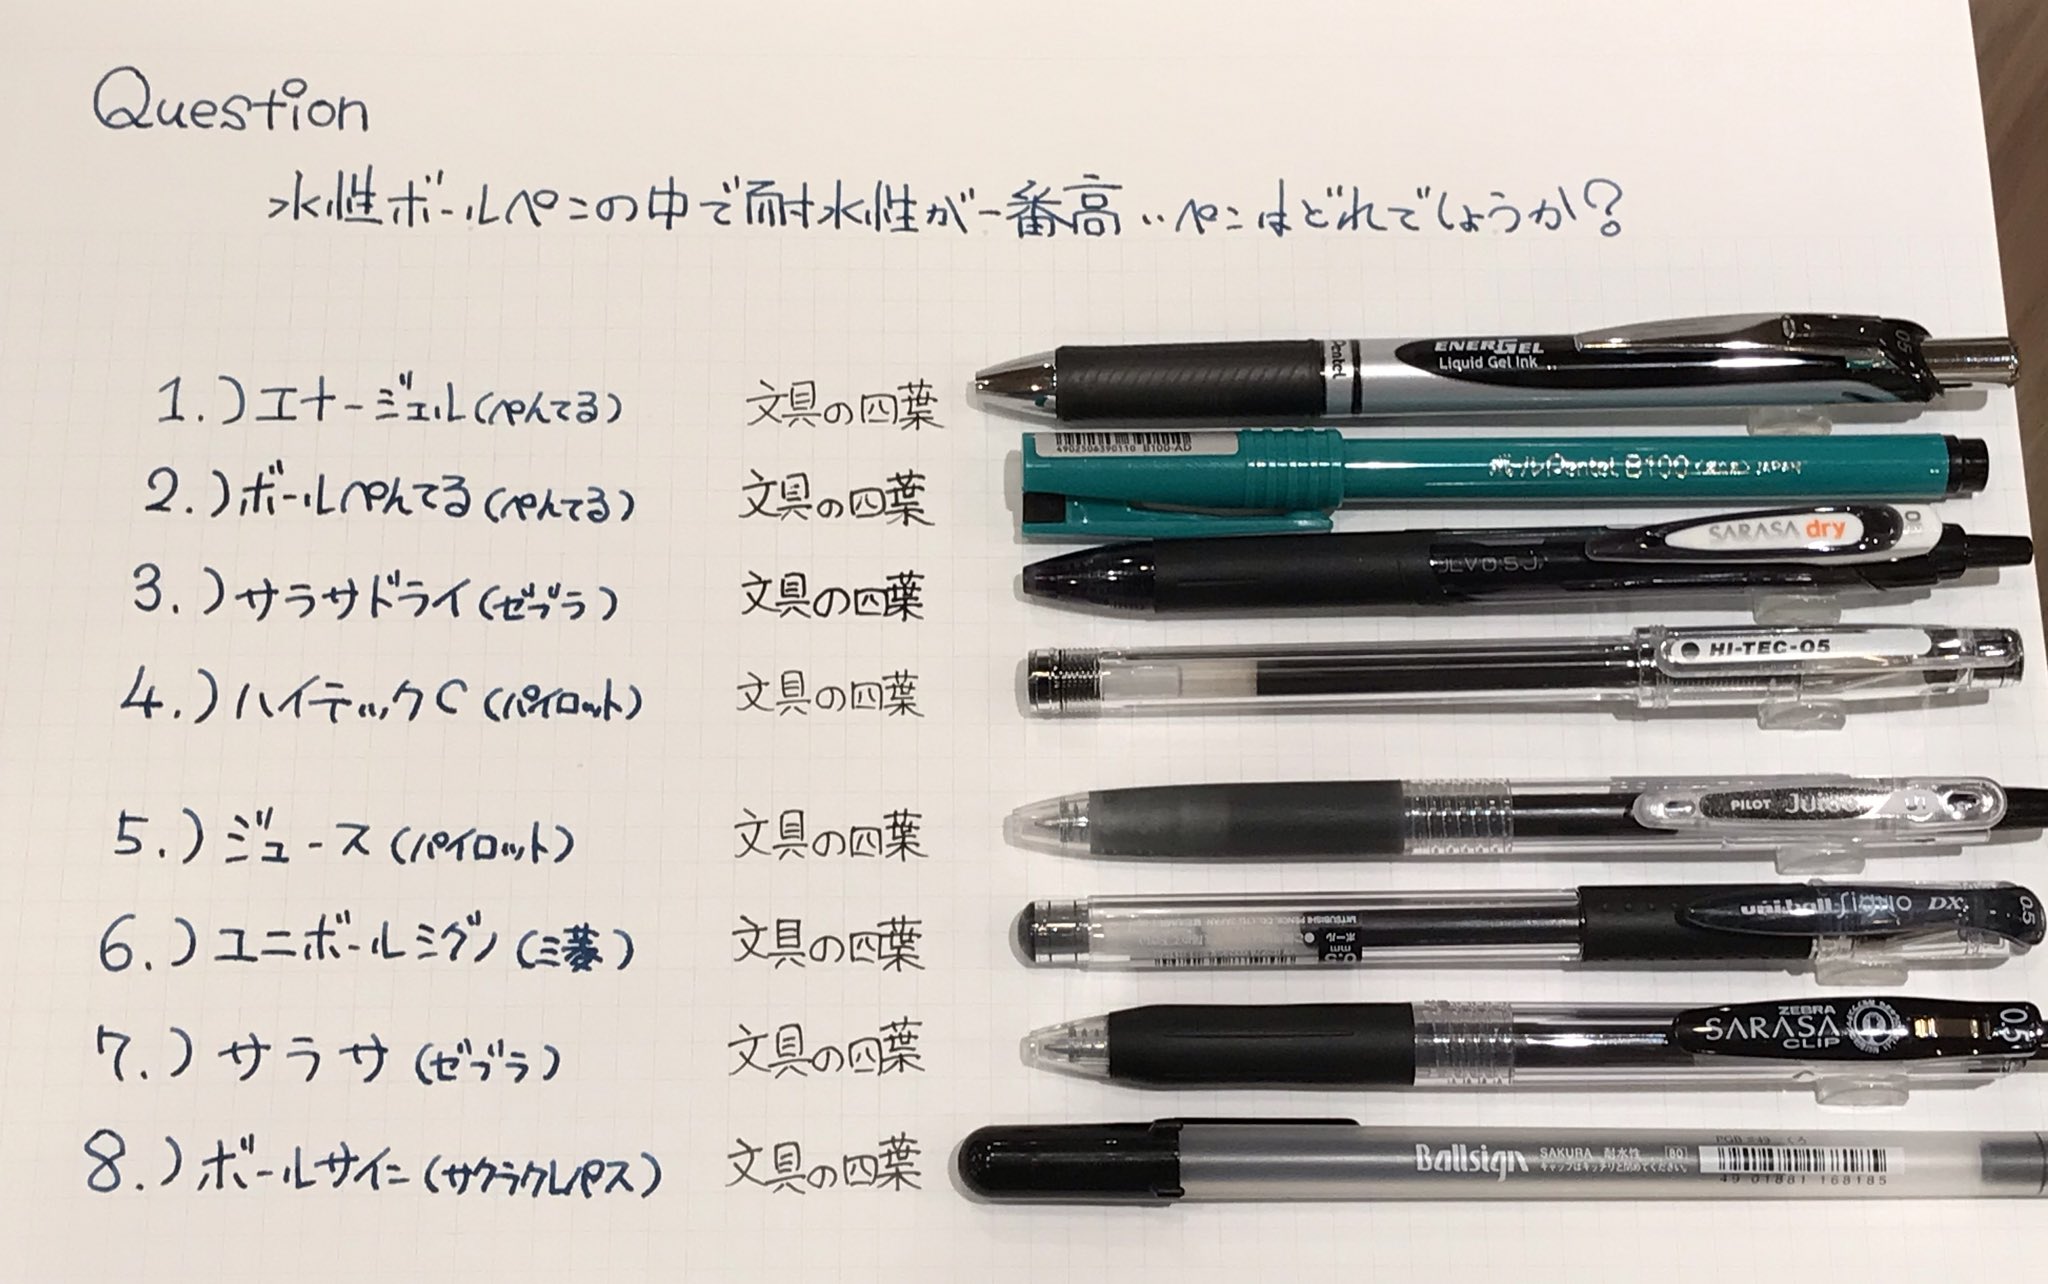 Question
水性ボールペンの中で耐水性が一番高いペンはどれでしょうか?
1.)エナージェル(ぺんてる) 文具の四葉
ENERGEL
Liquid Gel Ink
Pentel
0.5
2.)ボールぺんてる(ぺんてる) 文具の四葉
4902506390110 B100-AD
ボールPentel B100 JAPAN
3.)サラサドライ(ゼブラ) 文具の四葉
SARASA dry
4.)ハイテックC(パイロット) 文具の四葉
HI-TEC-05
5.)ジュース(パイロット) 文具の四葉
PILOT Juice
6.)ユニボールシグノ(三菱) 文具の四葉
uni-ball Signo DX
0.5
7.)サラサ(ゼブラ) 文具の四葉
ZEBRA
SARASA
CLIP
0.5
8.)ボールサイン(サクラクレパス) 文具の四葉
Ballsign
SAKURA 耐水性 [80]
キャップはキッチリと閉めてください。
くろ
49 01881 168185